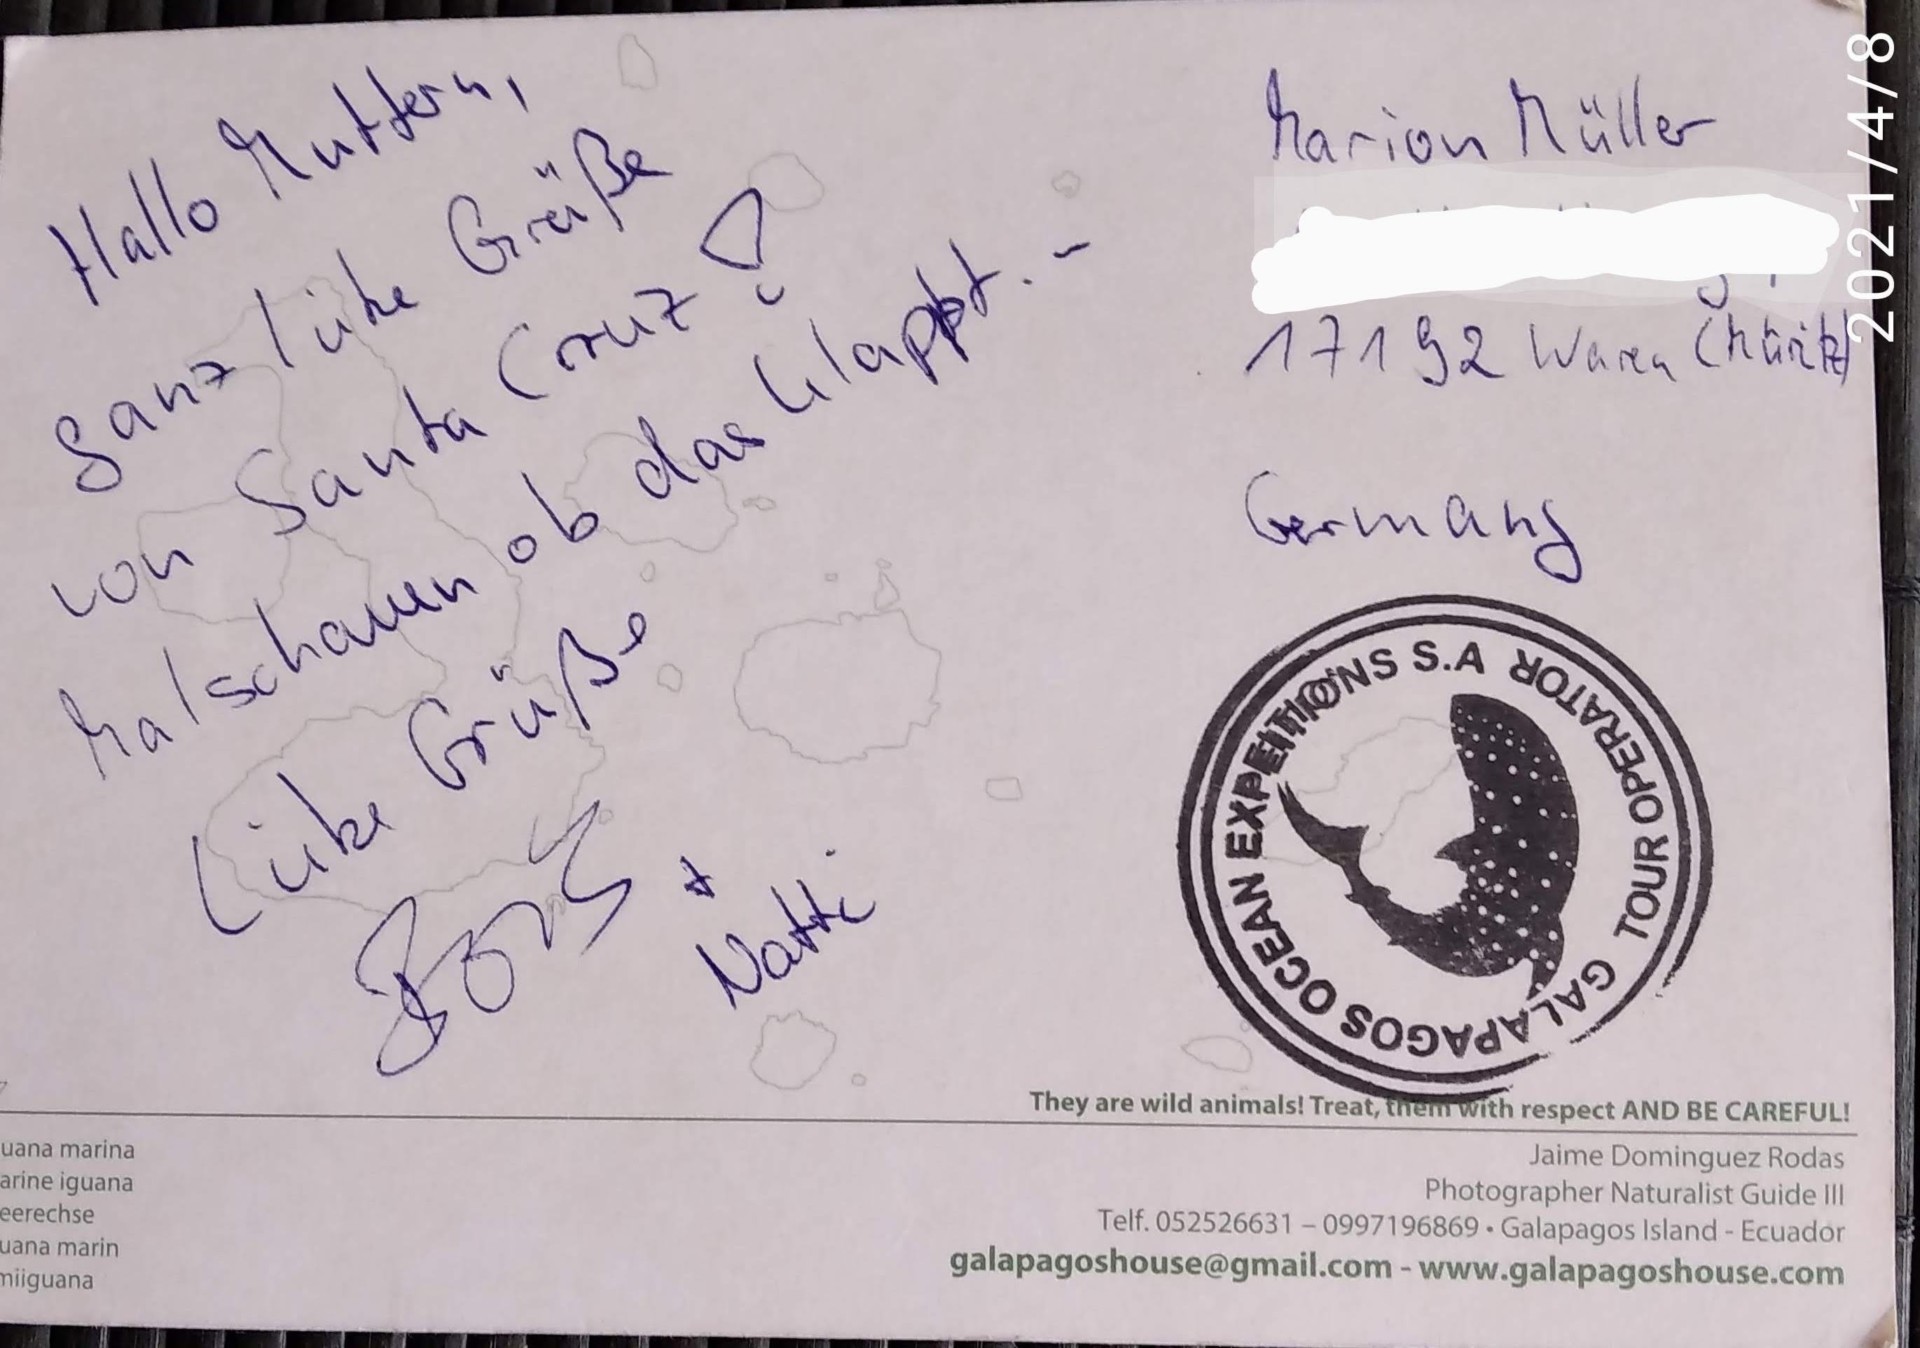 Hallo Muttern,
ganz liebe Grüße
von Santa Cruz
Malschauen ob das klappt. -
Liebe Grüße
Boris + Natti
Marion Müller
17192 Waren (Müritz)
Germany
GALAPAGOS OCEAN EXPEITIONS S.A TOUR OPERATOR
2021/4/8
They are wild animals! Treat, them with respect AND BE CAREFUL!
uana marina
arine iguana
eerechse
uana marin
miiguana
Jaime Dominguez Rodas
Photographer Naturalist Guide III
Telf. 052526631 – 0997196869 • Galapagos Island - Ecuador
galapagoshouse@gmail.com - www.galapagoshouse.com